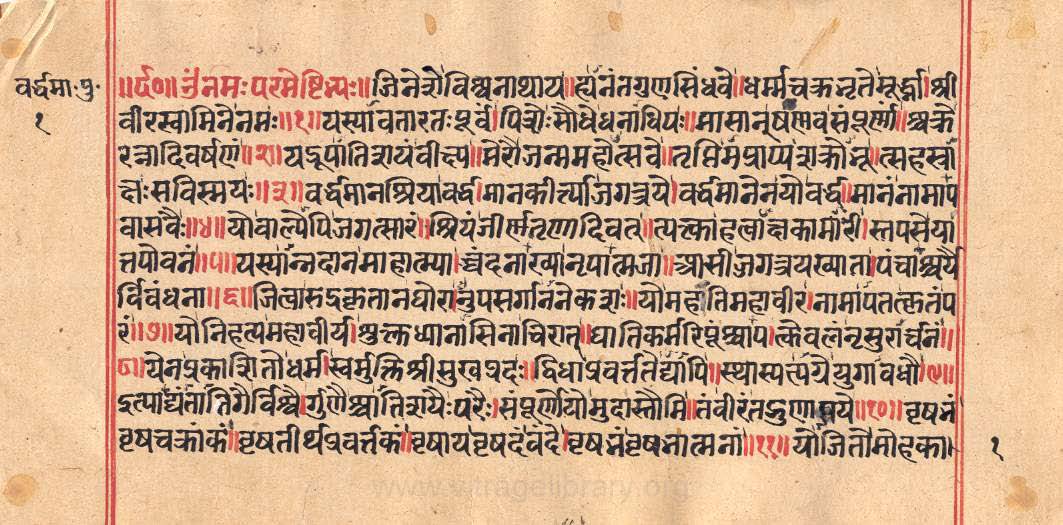 वर्द्धमा॰पु॰
१
॥र्द०॥ उँनमः परमेष्टिभ्यः॥ जिनेशे विश्वनाथाय॥ ह्यनंतगुणसिंधवे॥ धर्म्मचक्रभृते मूर्द्ध्ना। श्री
वीरस्वामिने नमः॥१॥ यस्यावतारतः पूर्वं। पित्रोः सौधे धनाधिपः॥ मासान्षण्णवसंपूर्णा॥ श्चक्रे
रत्नादिवर्षणं॥२॥ यद्रूपातिशयं वीक्ष्य॥ मेरौ जन्ममहोत्सवे॥ तृप्तिमप्राप्य शक्रोभू॥ त्सहस्रा
क्षः सविस्मयः॥३॥ वर्द्धमानश्रिया वर्द्ध। मानकीर्त्या जगत्त्रये। वर्द्धमानेन यो वर्द्ध॥ मानं नामाप
वासवैः॥४॥ यो वाल्येपि जगत्सारां॥ श्रियं जीर्णतृणादिवत्॥ त्यक्त्वा हत्वाक्षकामारीं। स्तपसे या
त्तपोवनं॥५॥ यस्यान्नदानमाहात्म्या। च्चंदनाख्या नृपात्मजा॥ आसीज्जगत्त्रयख्याता। पंचाश्चर्यै
र्विबंधना॥६॥ जित्वा रुद्रकृतान् घोरा। नुपसर्गाननेकशः॥ यो महातिमहावीर। नामाप तत्कृतं प
रं॥७॥ यो निहत्य महावीर्य। शुक्लध्यानासिनाचिरात्॥ घातिकर्मरिपूंश्चाप। त्केवलं नृसुरार्चनं॥
८॥ येन प्रकाशितो धर्म। स्वर्मुक्तिश्रीसुखप्रदः॥ द्विधा प्रवर्त्ततेद्यापि॥ स्थास्यत्यग्रे युगावधौ॥९॥
इत्याद्यंतातिगैर्विश्वै। र्गुणैश्चातिशयैः परैः। संपूर्णो यो मुदा स्तौमि॥ तं वीरं तद्गुणाप्तये॥१०॥ वृषभं
वृषचक्रांकं॥ वृषतीर्थप्रवर्त्तकं॥ वृषाय वृषदं वंदे। वृषभं वृषभात्मनां॥११॥ यो जितो मोहका।
१
www.vitragelibrary.org